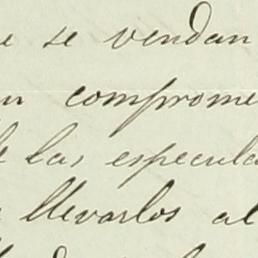 e se vendan
comprome
las especula
llevarlos al